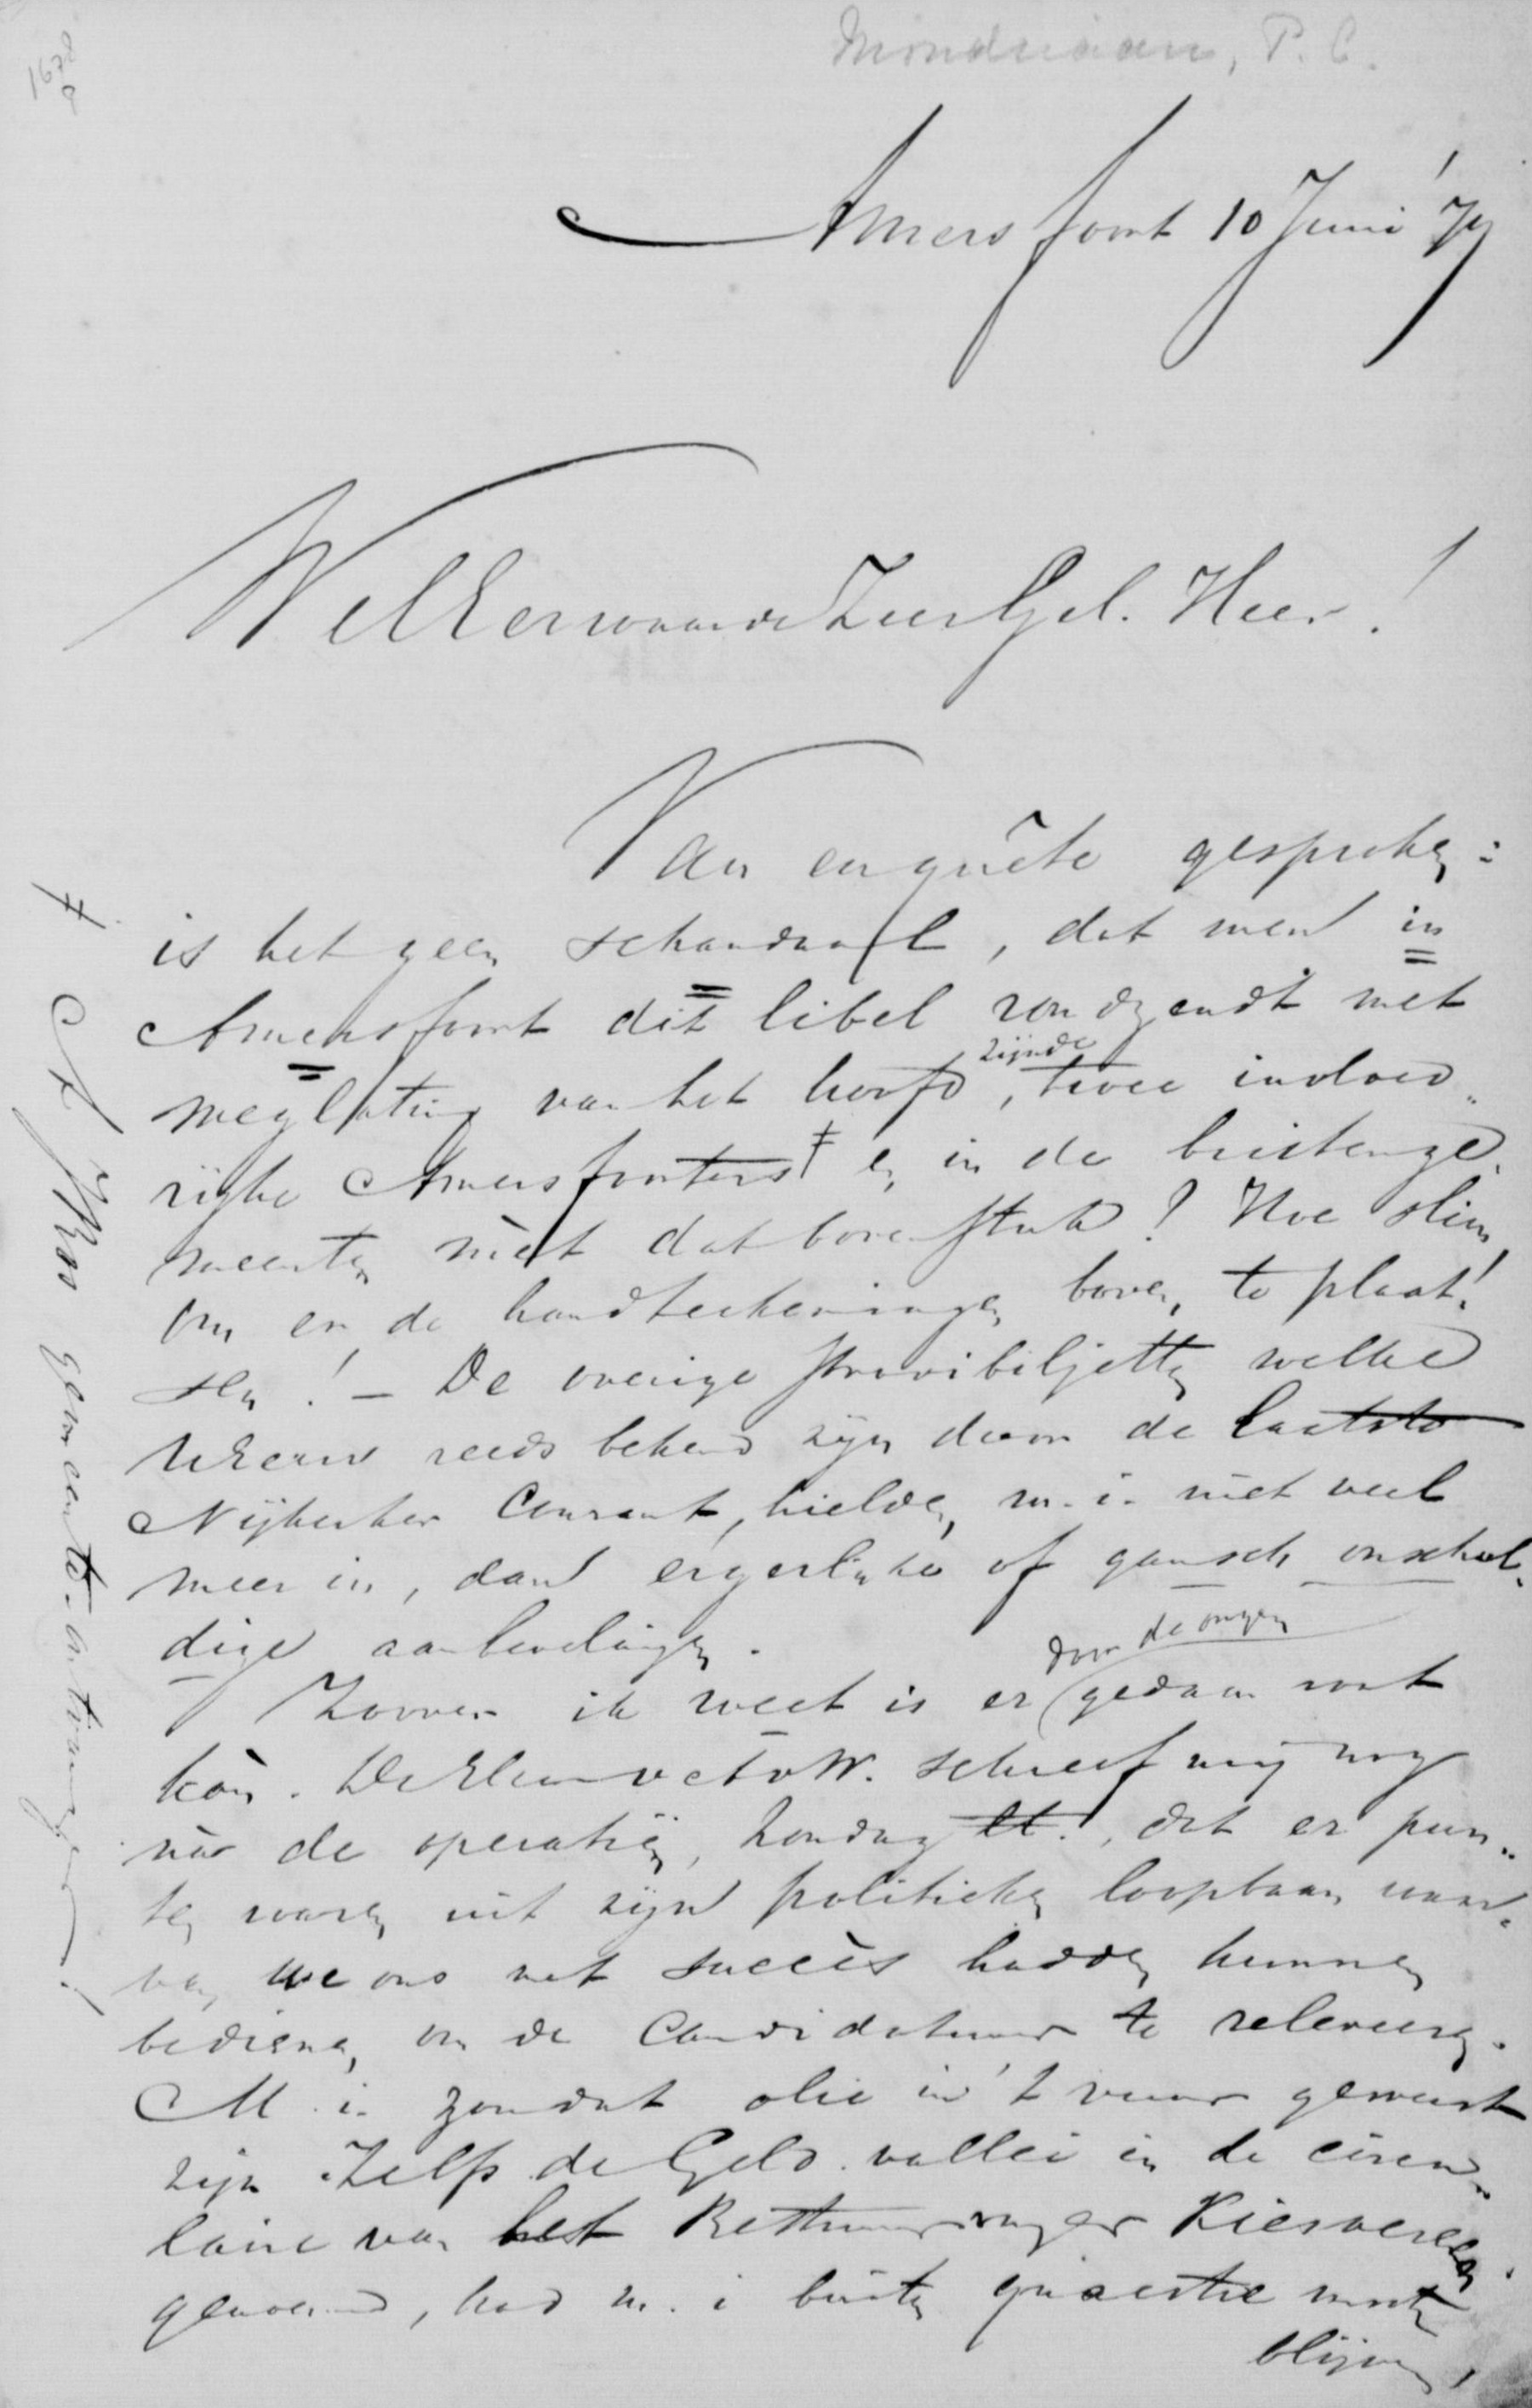 Mondriaan, P. C.
1670
Amersfoort 10 Juni '79
WelEerwaarde ZeerGel. Heer!
Van enquête gesproken:
is het geen schandaal, dat men in
Amersfoort dit libel rondzendt met
weglating van het hoofd, zijnde twee invloed„
rijke Amersfoorters ‡ en in de buitenge„
meenten mèt dat bovenstuk? Hoe slim
om er de handteekeningen boven te plaat„
sen! – De overige strooibiljetten welke
UEerw reeds bekend zijn door de laatste
Nijkerker Courant, hielden m. i. niet veel
meer in, dan ergerlijke of gansch onschul„
dige aanbevelingen.
Zoover ik weet is er door de onzen gedaan wat
kon. De Heer v W. schreef mij nog
na de operatien, Zondag ll., dat er pun„
ten waren uit zijn politieke loopbaan waar„
van we ons met succès hadden kunnen
bedienen, om de Candidatuur te releveeren.
M. i. zou dat olie in 't vuur geweest
zijn. Zelfs de Geld. vallei in de circu„
laire van het Bestuur onzer Kiesvereen.
genoemd, had m. i. buiten quaestie moeten
blijven,
‡ gom aan te ontvangen!